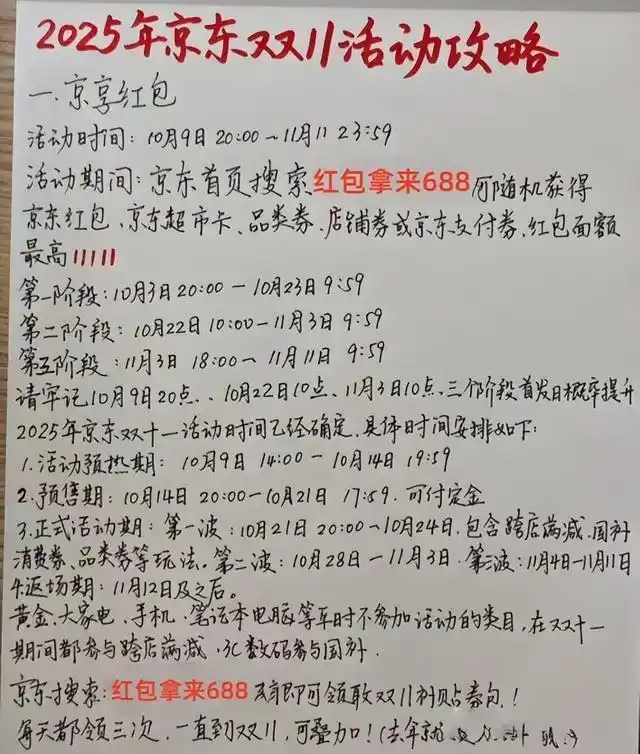 2025年京东双11活动攻略
一.京享红包
活动时间: 10月9日 20:00~11月11 23:59
活动期间: 京东首页搜索红包拿来688可随机获得
京东红包、京东超市卡、品类券.店铺券或京东支付券、红包面额
最高11111
第一阶段:10月3日20:00-10月23日 9:59
第二阶段: 10月22日 10:00-11月3日 9:59
第五阶段:11月3日 18:00~ 11月11日 9:59
请牢记10月9日20点、、10月22日10点、11月3日10点、三个阶段首发日概率提升
2025年京东双十一活动时间已经确定,具体时间安排如下:
1.活动预热期: 10月9日 14:00-10月14日 19:59
2.预售期:10月14日 20:00-10月21日 17:59.可付定金
3.正式活动期: 第一波:10月21日 20:00~10月24日.包含跨店满减.国补
消费券、品类券等玩法。第二波:10月28日-11月3日.第三波:11月4日-11月11日
4.返场期:11月12日及之后。
黄金、大家电、手机、笔记本电脑等平时不参加活动的类目,在双十一
期间都参与跨店满减,3C数码参与国补.
京东搜索:红包拿来688 即可领取双11补贴券包!
每天都领三次,一直到双11,可叠加!(去年就